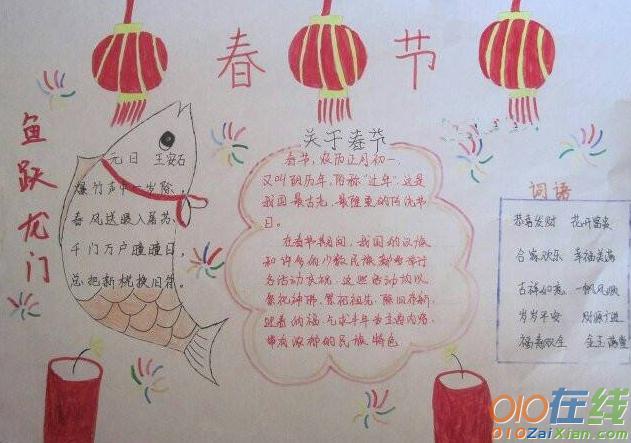 春节
鱼跃龙门
元日 王安石
爆竹声中一岁除,
春风送暖入屠苏,
千门万户曈曈日,
总把新桃换旧符。
关于春节
春节,农历正月初一,
又叫阴历年,俗称“过年”这是
我国最古老,最隆重的传统节
日。
在春节期间,我国的汉族
和许多的少数民族都要举行
各活动庆祝,这些活动均以
祭祀神佛,祭祀祖先,除旧布新,
迎春纳福,气求丰年为主要内容,
带有浓郁的民族特色
词语
恭喜发财 花开富贵
合家欢乐 幸福美满
吉祥如意 一帆风顺
岁岁平安 财源广进
福寿双全 金玉满堂
010在线
010ZaiXian.com